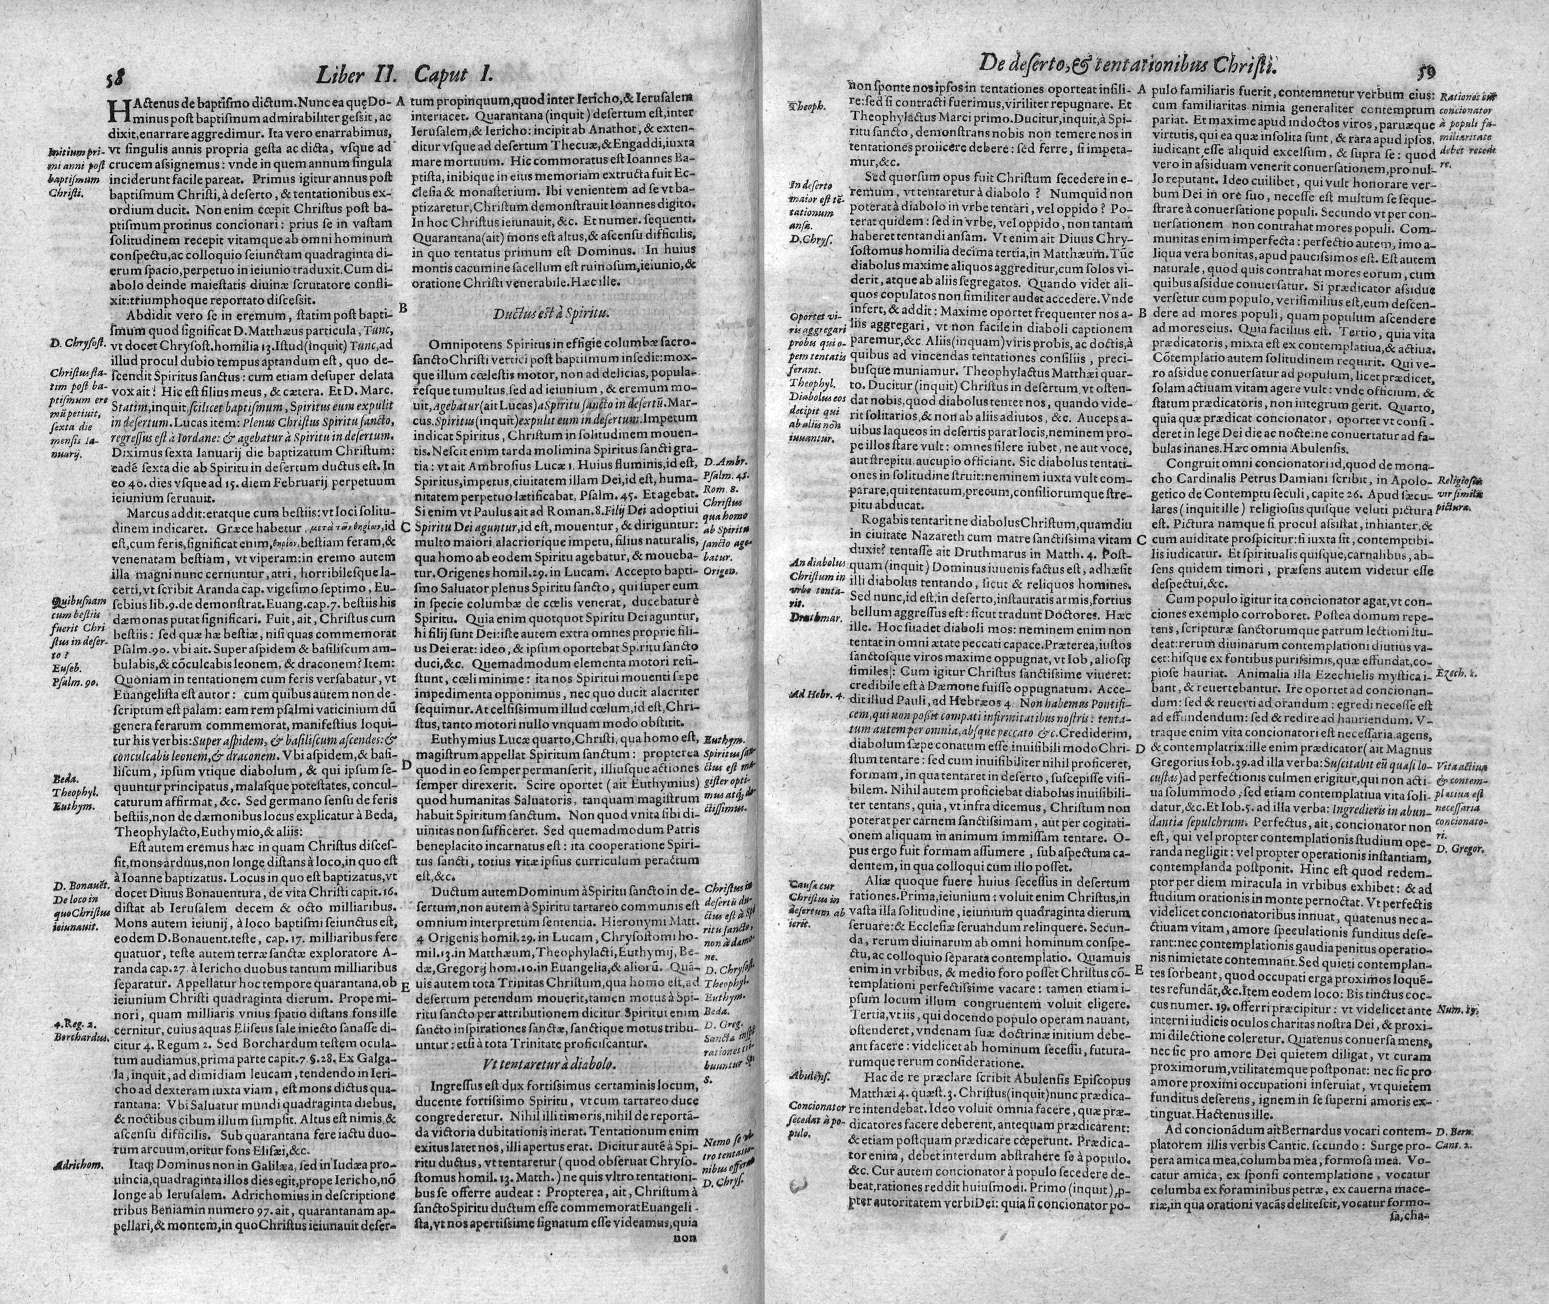 58
Liber II. Caput I.
HActenus de baptismo dictum. Nunc ea quę Do-
minus post baptismum admirabiliter gessit, ac
dixit, enarrare aggredimur. Ita vero enarrabimus,
vt singulis annis propria gesta ac dicta, vsque ad
crucem assignemus: vnde in quem annum singula
inciderint facile pareat. Primus igitur annus post
baptismum Christi, à deserto, & tentationibus ex-
ordium ducit. Non enim cœpit Christus post ba-
ptismum protinus concionari: prius se in vastam
solitudinem recepit vitamque ab omni hominum
conspectu, ac colloquio seiunctam quadraginta di-
erum spacio, perpetuo in ieiunio traduxit. Cum di-
abolo deinde maiestatis diuinæ scrutatore confli-
xit: triumphoque reportato discessit.
Abdidit vero se in eremum, statim post bapti-
smum quod significat D. Matthæus particula, Tunc,
vt docet Chrysost. homilia 13. Istud (inquit) Tunc, ad
illud procul dubio tempus aptandum est, quo de-
scendit Spiritus sanctus: cum etiam desuper delata
vox ait: Hic est filius meus, & cætera. Et D. Marc.
Statim, inquit, scilicet baptismum, Spiritus eum expulit
in desertum. Lucas item: Plenus Christus Spiritu sancto,
regressus est à Iordane: & agebatur à Spiritu in desertum.
Diximus sexta Ianuarij die baptizatum Christum:
eadē sexta die ab Spiritu in desertum ductus est. In
eo 40. dies vsque ad 15. diem Februarij perpetuum
ieiunium seruauit.
Marcus addit: eratque cum bestiis: vt loci solitu-
dinem indicaret. Græce habetur, μετὰ τῶν θηρίων, id
est, cum feris, significat enim, θηρίον, bestiam feram, &
venenatam bestiam, vt viperam: in eremo autem
illa magni nunc cernuntur, atri, horribilesque la-
certi, vt scribit Aranda cap. vigesimo septimo, Eu-
sebius lib. 9. de demonstrat. Euang. cap. 7. bestiis his
dæmonas putat significari. Fuit, ait, Christus cum
bestiis: sed quæ hæ bestiæ, nisi quas commemorat
Psalm. 90. vbi ait. Super aspidem & basiliscum am-
bulabis, & cōculcabis leonem, & draconem? Item:
Quoniam in tentationem cum feris versabatur, vt
Euangelista est autor: cum quibus autem non de-
scriptum est palam: eam rem psalmi vaticinium dū
genera ferarum commemorat, manifestius loqui-
tur his verbis: Super aspidem, & basiliscum ascendes: &
conculcabis leonem, & draconem. Vbi aspidem, & basi-
liscum, ipsum vtique diabolum, & qui ipsum se-
quuntur principatus, malasque potestates, concul-
caturum affirmat, &c. Sed germano sensu de feris
bestiis, non de dæmonibus locus explicatur à Beda,
Theophylacto, Euthymio, & aliis:
Est autem eremus hæc in quam Christus disces-
sit, mons arduus, non longe distans à loco, in quo est
à Ioanne baptizatus. Locus in quo est baptizatus, vt
docet Diuus Bonauentura, de vita Christi capit. 16.
distat ab Ierusalem decem & octo milliaribus.
Mons autem ieiunij, à loco baptismi seiunctus est,
eodem D. Bonauent. teste, cap. 17. milliaribus fere
quatuor, teste autem terræ sanctæ exploratore A-
randa cap. 27. à Iericho duobus tantum milliaribus
separatur. Appellatur hoc tempore quarantana, ob
ieiunium Christi quadraginta dierum. Prope mi-
nori, quam milliaris vnius spatio distans fons ille
cernitur, cuius aquas Eliseus sale iniecto sanasse di-
citur 4. Regum 2. Sed Borchardum testem ocula-
tum audiamus, prima parte capit. 7. §. 28. Ex Galga-
la, inquit, ad dimidiam leucam, tendendo in Ieri-
cho ad dexteram iuxta viam, est mons dictus qua-
rantana: Vbi Saluatur mundi quadraginta diebus,
& noctibus cibum illum sumpsit. Altus est nimis, &
ascensu difficilis. Sub quarantana fere iactu duo-
rum arcuum, oritur fons Elisæi, &c.
Itaq; Dominus non in Galilæa, sed in Iudæa pro-
uincia, quadraginta illos dies egit, prope Iericho, nō
longe ab Ierusalem. Adrichomius in descriptione
tribus Beniamin numero 97. ait, quarantanam ap-
pellari, & montem, in quo Christus ieiunauit deser-
Initium pri-
mi anni post
baptismum
Christi.
D. Chrysost.
Christus sta-
tim post ba-
ptismum ere
mū petiuit,
sexta die
mensis Ia-
nuarij.
Quibusnam
cum bestiis
fuerit Chri
stus in deser-
to?
Euseb.
Psalm. 90.
Beda.
Theophyl.
Euthym.
D. Bonauēt.
De loco in
quo Christus
ieiunauit.
4. Reg. 2.
Borchardus.
Adrichom.
A
B
C
D
E
tum propinquum, quod inter Iericho, & Ierusalem
interiacet. Quarantana (inquit) desertum est, inter
Ierusalem, & Iericho: incipit ab Anathot, & exten-
ditur vsque ad desertum Thecuæ, & Engaddi, iuxta
mare mortuum. Hic commoratus est Ioannes Ba-
ptista, inibique in eius memoriam extructa fuit Ec-
clesia & monasterium. Ibi venientem ad se vt ba-
ptizaretur, Christum demonstrauit Ioannes digito.
In hoc Christus ieiunauit, &c. Et numer. sequenti.
Quarantana (ait) mons est altus, & ascensu difficilis,
in quo tentatus primum est Dominus. In huius
montis cacumine sacellum est ruinosum, ieiunio, &
oratione Christi venerabile. Hæc ille.
Ductus est à Spiritu.
Omnipotens Spiritus in effigie columbæ sacro-
sancto Christi vertici post baptismum insedit: mox-
que illum cœlestis motor, non ad delicias, popula-
resque tumultus, sed ad ieiunium, & eremum mo-
uit, agebatur (ait Lucas) a Spiritu sancto in desertū. Mar-
cus. Spiritus (inquit) expulit eum in desertum. Impetum
indicat Spiritus, Christum in solitudinem mouen-
tis. Nescit enim tarda molimina Spiritus sancti gra-
tia: vt ait Ambrosius Lucæ 1. Huius fluminis, id est,
Spiritus, impetus, ciuitatem illam Dei, id est, huma-
nitatem perpetuo lætificabat, Psalm. 45. Et agebat.
Si enim vt Paulus ait ad Roman. 8. Filij Dei adoptiui
Spiritu Dei aguntur, id est, mouentur, & diriguntur:
multo maiori alacriorique impetu, filius naturalis,
qua homo ab eodem Spiritu agebatur, & moueba-
tur. Origenes homil. 29. in Lucam. Accepto bapti-
smo Saluator plenus Spiritu sancto, qui super eum
in specie columbæ de cœlis venerat, ducebatur è
Spiritu. Quia enim quotquot Spiritu Dei aguntur,
hi filij sunt Dei: iste autem extra omnes proprie fili-
us Dei erat: ideo, & ipsum oportebat Spiritu sancto
duci, &c. Quemadmodum elementa motori resi-
stunt, cœli minime: ita nos Spiritui mouenti sæpe
impedimenta opponimus, nec quo ducit alacriter
sequimur. At celsissimum illud cœlum, id est, Chri-
stus, tanto motori nullo vnquam modo obstitit.
Euthymius Lucæ quarto, Christi, qua homo est,
magistrum appellat Spiritum sanctum: propterea
quod in eo semper permanserit, illiusque actiones
semper direxerit. Scire oportet (ait Euthymius)
quod humanitas Saluatoris, tanquam magistrum
habuit Spiritum sanctum. Non quod vnita sibi di-
uinitas non sufficeret. Sed quemadmodum Patris
beneplacito incarnatus est: ita cooperatione Spiri-
tus sancti, totius vitæ ipsius curriculum peractum
est, &c.
Ductum autem Dominum à Spiritu sancto in de-
sertum, non autem à Spiritu tartareo communis est
omnium interpretum sententia. Hieronymi Matt.
4. Origenis homil. 29. in Lucam, Chrysostomi ho-
mil. 13. in Matthæum, Theophylacti, Euthymij, Be-
dæ, Gregorij hom. 10. in Euangelia, & aliorū. Quā-
uis autem tota Trinitas Christum, qua homo est, ad
desertum petendum mouerit, tamen motus à Spi-
ritu sancto per attributionem dicitur Spiritui enim
sancto inspirationes sanctæ, sanctique motus tribu-
untur: etsi à tota Trinitate proficiscantur.
Vt tentaretur à diabolo.
Ingressus est dux fortissimus certaminis locum,
ducente fortissimo Spiritu, vt cum tartareo duce
congrederetur. Nihil illi timoris, nihil de reportā-
da victoria dubitationis inerat. Tentationum enim
exitus latet nos, illi apertus erat. Dicitur autē à Spi-
ritu ductus, vt tentaretur (quod obseruat Chryso-
stomus homil. 13. Matth.) ne quis vltro tentationi-
bus se offerre audeat: Propterea, ait, Christum à
sancto Spiritu ductum esse commemorat Euangeli-
sta, vt nos apertissime signatum esse videamus, quia
non
D. Ambr.
Psalm. 45.
Rom. 8.
Christus
qua homo
ab Spiritu
sancto age-
batur.
Origen.
Euthym.
Spiritus san-
ctus est ma-
gister opti-
mus atq; do-
ctissimus.
Christus in
desertū du-
ctus est à Spi
ritu sancto,
non à dæmo-
ne.
D. Chrysost.
Theophyl.
Euthym.
Beda.
D. Greg.
Sancta inspi
rationes tri-
buuntur Sp.
S.
Nemo se vl-
tro tentatio-
nibus offerat
D. Chrys.
De deserto, & tentationibus Christi.
59
Theoph.
In deserto
maior est tē-
tationum
ansa.
D. Chrys.
Oportet vi-
ris aggregari
probis qui o-
pem tentatis
ferant.
Theophyl.
Diabolus eos
decipit qui
ab aliis non
iuuantur.
An diabolus
Christum in
vrbe tenta-
rit.
Druthmar.
Ad Hebr. 4.
Causa cur
Christus in
desertum ab
ierit.
Abulens.
Concionator
secedat à po-
pulo.
non sponte nos ipsos in tentationes oporteat insili-
re: sed si contracti fuerimus, viriliter repugnare. Et
Theophylactus Marci primo. Ducitur, inquit, à Spi-
ritu sancto, demonstrans nobis non temere nos in
tentationes proiicere debere: sed ferre, si impeta-
mur, &c.
Sed quorsum opus fuit Christum secedere in e-
remum, vt tentaretur à diabolo? Numquid non
poterat à diabolo in vrbe tentari, vel oppido? Po-
terat quidem: sed in vrbe, vel oppido, non tantam
haberet tentandi ansam. Vt enim ait Diuus Chry-
sostomus homilia decima tertia, in Matthæum. Tūc
diabolus maxime aliquos aggreditur, cum solos vi-
derit, atque ab aliis segregatos. Quando videt ali-
quos copulatos non similiter audet accedere. Vnde
infert, & addit: Maxime oportet frequenter nos a-
liis aggregari, vt non facile in diaboli captionem
paremur, &c Aliis (inquam) viris probis, ac doctis, à
quibus ad vincendas tentationes consiliis, preci-
busque muniamur. Theophylactus Matthæi quar-
to. Ducitur (inquit) Christus in desertum, vt osten-
dat nobis, quod diabolus tentet nos, quando vide-
rit solitarios, & non ab aliis adiutos, &c. Auceps a-
uibus laqueos in desertis parat locis, neminem pro-
pe illos stare vult: omnes silere iubet, ne aut voce,
aut strepitu aucupio officiant. Sic diabolus tentati-
ones in solitudine struit: neminem iuxta vult com-
parare, qui tentatum, precum, consiliorumque stre-
pitu abducat.
Rogabis tentarit ne diabolus Christum, quamdiu
in ciuitate Nazareth cum matre sanctissima vitam
duxit? tentasse ait Druthmarus in Matth. 4. Post-
quam (inquit) Dominus iuuenis factus est, adhæsit
illi diabolus tentando, sicut & reliquos homines.
Sed nunc, id est, in deserto, instauratis armis, fortius
bellum aggressus est: sicut tradunt Doctores. Hæc
ille. Hoc suadet diaboli mos: neminem enim non
tentat in omni ætate peccati capace. Præterea, iustos
sanctosque viros maxime oppugnat, vt Iob, aliosq;
similes: Cum igitur Christus sanctissime viueret:
credibile est à Dæmone fuisse oppugnatum. Acce-
dit illud Pauli, ad Hebræos 4. Non habemus Pontifi-
cem, qui non possit compati infirmitatibus nostris: tenta-
tum autem per omnia, absque peccato &c. Crediderim,
diabolum sæpe conatum esse, inuisibili modo Chri-
stum tentare: sed cum inuisibiliter nihil proficeret,
formam, in qua tentaret in deserto, suscepisse visi-
bilem. Nihil autem proficiebat diabolus inuisibili-
ter tentans, quia, vt infra dicemus, Christum non
poterat per carnem sanctissimam, aut per cogitati-
onem aliquam in animum immissam tentare. O-
pus ergo fuit formam assumere, sub aspectum ca-
dentem, in qua colloqui cum illo posset.
Aliæ quoque fuere huius secessus in desertum
rationes. Prima, ieiunium: voluit enim Christus, in
vasta illa solitudine, ieiunium quadraginta dierum
seruare: & Ecclesiæ seruandum relinquere. Secun-
da, rerum diuinarum ab omni hominum conspe-
ctu, ac colloquio separata contemplatio. Quamuis
enim in vrbibus, & medio foro posset Christus cō-
templationi perfectissime vacare: tamen etiam i-
psum locum illum congruentem voluit eligere.
Tertia, vt iis, qui docendo populo operam nauant,
ostenderet, vndenam suæ doctrinæ initium debe-
ant facere: videlicet ab hominum secessu, futura-
rumque rerum consideratione.
Hac de re præclare scribit Abulensis Episcopus
Matthæi 4. quæst. 3. Christus (inquit) nunc prædica-
re intendebat. Ideo voluit omnia facere, quæ præ-
dicatores facere deberent, antequam prædicarent:
& etiam postquam prædicare cœperunt. Prædica-
tor enim, debet interdum abstrahere se à populo,
&c. Cur autem concionator à populo secedere de-
beat, rationes reddit huiusmodi. Primo (inquit), p-
pter autoritatem verbi Dei: quia si concionator po-
A
B
C
D
E
pulo familiaris fuerit, contemnetur verbum eius:
cum familiaritas nimia generaliter contemptum
pariat. Et maxime apud indoctos viros, paruæque
virtutis, qui ea quæ insolita sunt, & rara apud ipsos,
iudicant esse aliquid excelsum, & supra se: quod
vero in assiduam venerit conuersationem, pro nul-
lo reputant. Ideo cuilibet, qui vult honorare ver-
bum Dei in ore suo, necesse est multum se seque-
strare à conuersatione populi. Secundo vt per con-
uersationem non contrahat mores populi. Com-
munitas enim imperfecta: perfectio autem, imo a-
liqua vera bonitas, apud paucissimos est. Est autem
naturale, quod quis contrahat mores eorum, cum
quibus assidue conuersatur. Si prædicator assidue
versetur cum populo, verisimilius est, eum descen-
dere ad mores populi, quam populum ascendere
ad mores eius. Quia facilius est. Tertio, quia vita
prædicatoris, mixta est ex contemplatiua, & actiua.
Cōtemplatio autem solitudinem requirit. Qui ve-
ro assidue conuersatur ad populum, licet prædicet,
solam actiuam vitam agere vult: vnde officium, &
statum prædicatoris, non integrum gerit. Quarto,
quia quæ prædicat concionator, oportet vt consi-
deret in lege Dei die ac nocte: ne conuertatur ad fa-
bulas inanes. Hæc omnia Abulensis.
Congruit omni concionatori id, quod de mona-
cho Cardinalis Petrus Damiani scribit, in Apolo-
getico de Contemptu seculi, capite 26. Apud sæcu-
lares (inquit ille) religiosus quisque veluti pictura
est. Pictura namque si procul assistat, inhianter, &
cum auiditate prospicitur: si iuxta sit, contemptibi-
lis iudicatur. Et spiritualis quisque, carnalibus, ab-
sens quidem timori, præsens autem videtur esse
despectui, &c.
Cum populo igitur ita concionator agat, vt con-
ciones exemplo corroboret. Postea domum repe-
tens, scripturæ sanctorumque patrum lectioni stu-
deat: rerum diuinarum contemplationi diutius va-
cet: hisque ex fontibus purissimis, quæ effundat, co-
piose hauriat. Animalia illa Ezechielis mystica i-
bant, & reuertebantur. Ire oportet ad concionan-
dum: sed & reuerti ad orandum: egredi necesse est
ad effundendum: sed & redire ad hauriendum. V-
traque enim vita concionatori est necessaria, agens,
& contemplatrix: ille enim prædicator (ait Magnus
Gregorius Iob. 39. ad illa verba: Suscitabit eū quasi lo-
custas) ad perfectionis culmen erigitur, qui non acti-
ua solummodo, sed etiam contemplatiua vita soli-
datur, &c. Et Iob. 5. ad illa verba: Ingredieris in abun-
dantia sepulchrum. Perfectus, ait, concionator non
est, qui vel propter contemplationis studium ope-
randa negligit: vel propter operationis instantiam,
contemplanda postponit. Hinc est quod redem-
ptor per diem miracula in vrbibus exhibet: & ad
studium orationis in monte pernoctat. Vt perfectis
videlicet concionatoribus innuat, quatenus nec a-
ctiuam vitam, amore speculationis funditus dese-
rant: nec contemplationis gaudia penitus operatio-
nis nimietate contemnant. Sed quieti contemplan-
tes sorbeant, quod occupati erga proximos loquē-
tes refundāt, &c. Item eodem loco: Bis tinctus coc-
cus numer. 19. offerri præcipitur: vt videlicet ante
interni iudicis oculos charitas nostra Dei, & proxi-
mi dilectione coloretur. Quatenus conuersa mens,
nec sic pro amore Dei quietem diligat, vt curam
proximorum, vtilitatemque postponat: nec sic pro
amore proximi occupationi inseruiat, vt quietem
funditus deserens, ignem in se superni amoris ex-
tinguat. Hactenus ille.
Ad concionādum ait Bernardus vocari contem-
platorem illis verbis Cantic. secundo: Surge pro-
pera amica mea, columba mea, formosa mea. Vo-
catur amica, ex sponsi contemplatione, vocatur
columba ex foraminibus petræ, ex cauerna mace-
riæ, in qua orationi vacās delitescit, vocatur formo-
sa, cha-
Rationes cur
concionator
à populi fa-
miliaritate
debet recede
re.
Religiosus
vir similis
pictura.
Ezech. 1.
Vita actiua
& contem-
platiua est
necessaria
concionato-
ri.
D. Gregor.
Num. 19.
D. Bern.
Cant. 2.